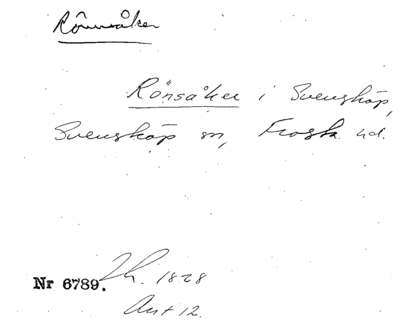 Rönnsåker
Rönsåker i Svensköp,
Svensköp sn, Frosta hd.
Nr 6789. Lh. 1828
Akt 12.